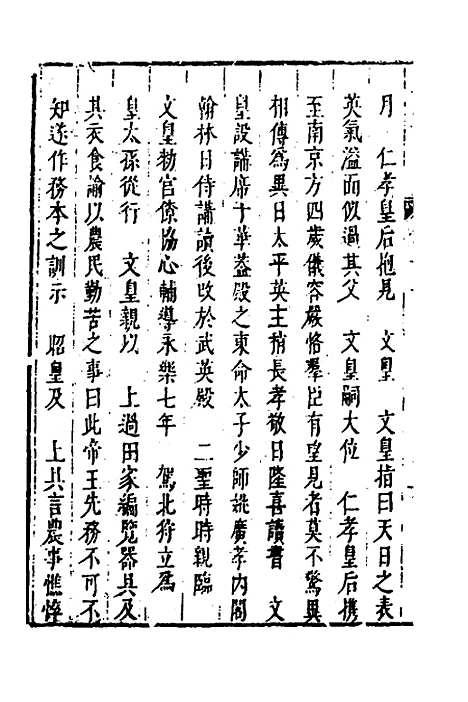 月　仁孝皇后抱見　文皇　文皇指曰天日之表
英氣溢面似過其父　文皇嗣大位　仁孝皇后携
至南京方四歲儀容嚴恪羣臣有望見者莫不驚異
相傳爲異日太平英主稍長孝敬日隆喜讀書　文
皇設講席于華蓋殿之東命太子少師姚廣孝内閣
翰林日侍講讀後改於武英殿　二聖時時親臨
文皇勑官僚協心輔導永樂七年　駕北狩立爲
皇太孫從行　文皇親以　上過田家編覽器具及
其衣食諭以農民勤苦之事曰此帝王先務不可不
知遂作務本之訓示　昭皇及　上具言農事憔悴